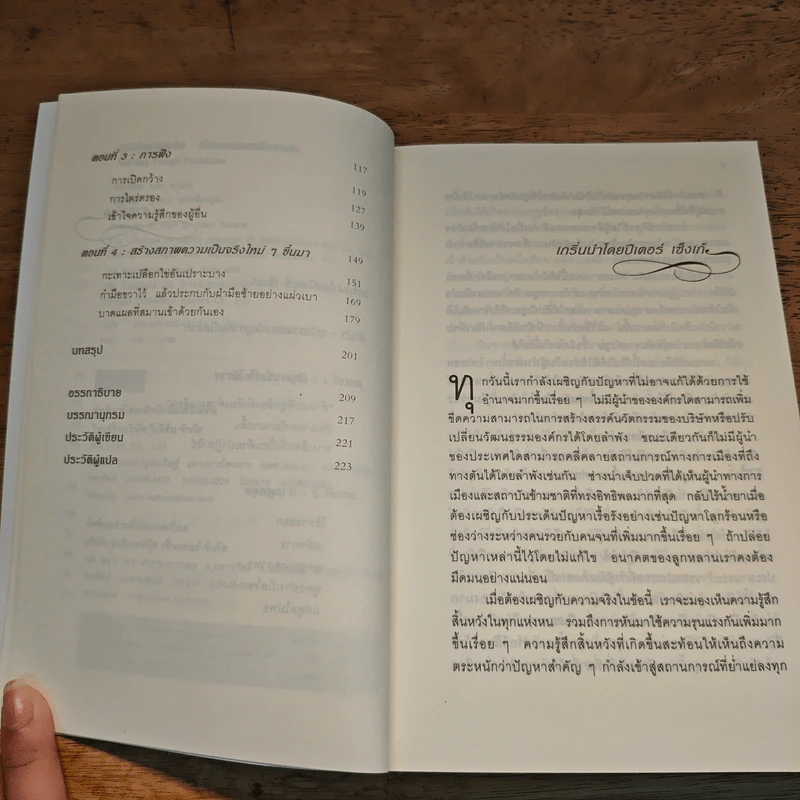 ตอนที่ 3 : การฟัง 117
การเปิดกว้าง 119
การไตร่ตรอง 127
เข้าใจความรู้สึกของผู้อื่น 139
ตอนที่ 4 : สร้างสภาพความเป็นจริงใหม่ ๆ ขึ้นมา 149
กะเทาะเปลือกไข่อันเปราะบาง 151
กำมือขวาไว้ แล้วประกบกับฝ่ามือซ้ายอย่างแผ่วเบา 169
บาดแผลที่สมานเข้าด้วยกันเอง 179
บทสรุป 201
อรรถาธิบาย 209
บรรณานุกรม 217
ประวัติผู้เขียน 221
ประวัติผู้แปล 223
เกริ่นนำโดยปีเตอร์ เซ็งเก้
ทุกวันนี้เรากำลังเผชิญกับปัญหาที่ไม่อาจแก้ได้ด้วยการใช้
อำนาจมากขึ้นเรื่อย ๆ ไม่มีผู้นำขององค์กรใดสามารถเพิ่ม
ขีดความสามารถในการสร้างสรรค์นวัตกรรมของบริษัทหรือปรับ
เปลี่ยนวัฒนธรรมองค์กรได้โดยลำพัง ขณะเดียวกันก็ไม่มีผู้นำ
ของประเทศใดสามารถคลี่คลายสถานการณ์ทางการเมืองที่ถึง
ทางตันได้โดยลำพังเช่นกัน ช่างน่าเจ็บปวดที่ได้เห็นผู้นำทางการ
เมืองและสถาบันข้ามชาติที่ทรงอิทธิพลมากที่สุด กลับไร้น้ำยาเมื่อ
ต้องเผชิญกับประเด็นปัญหาเรื้อรังอย่างเช่นปัญหาโลกร้อนหรือ
ช่องว่างระหว่างคนรวยกับคนจนที่เพิ่มมากขึ้นเรื่อย ๆ ถ้าปล่อย
ปัญหาเหล่านี้ไว้โดยไม่แก้ไข อนาคตของลูกหลานเราคงต้อง
มืดมนอย่างแน่นอน
เมื่อต้องเผชิญกับความจริงในข้อนี้ เราจะมองเห็นความรู้สึก
สิ้นหวังในทุกแห่งหน รวมถึงการหันมาใช้ความรุนแรงกันเพิ่มมาก
ขึ้นเรื่อย ๆ ความรู้สึกสิ้นหวังที่เกิดขึ้นสะท้อนให้เห็นถึงความ
ตระหนักว่าปัญหาสำคัญ ๆ กำลังเข้าสู่สถานการณ์ที่ย่ำแย่ลงทุก